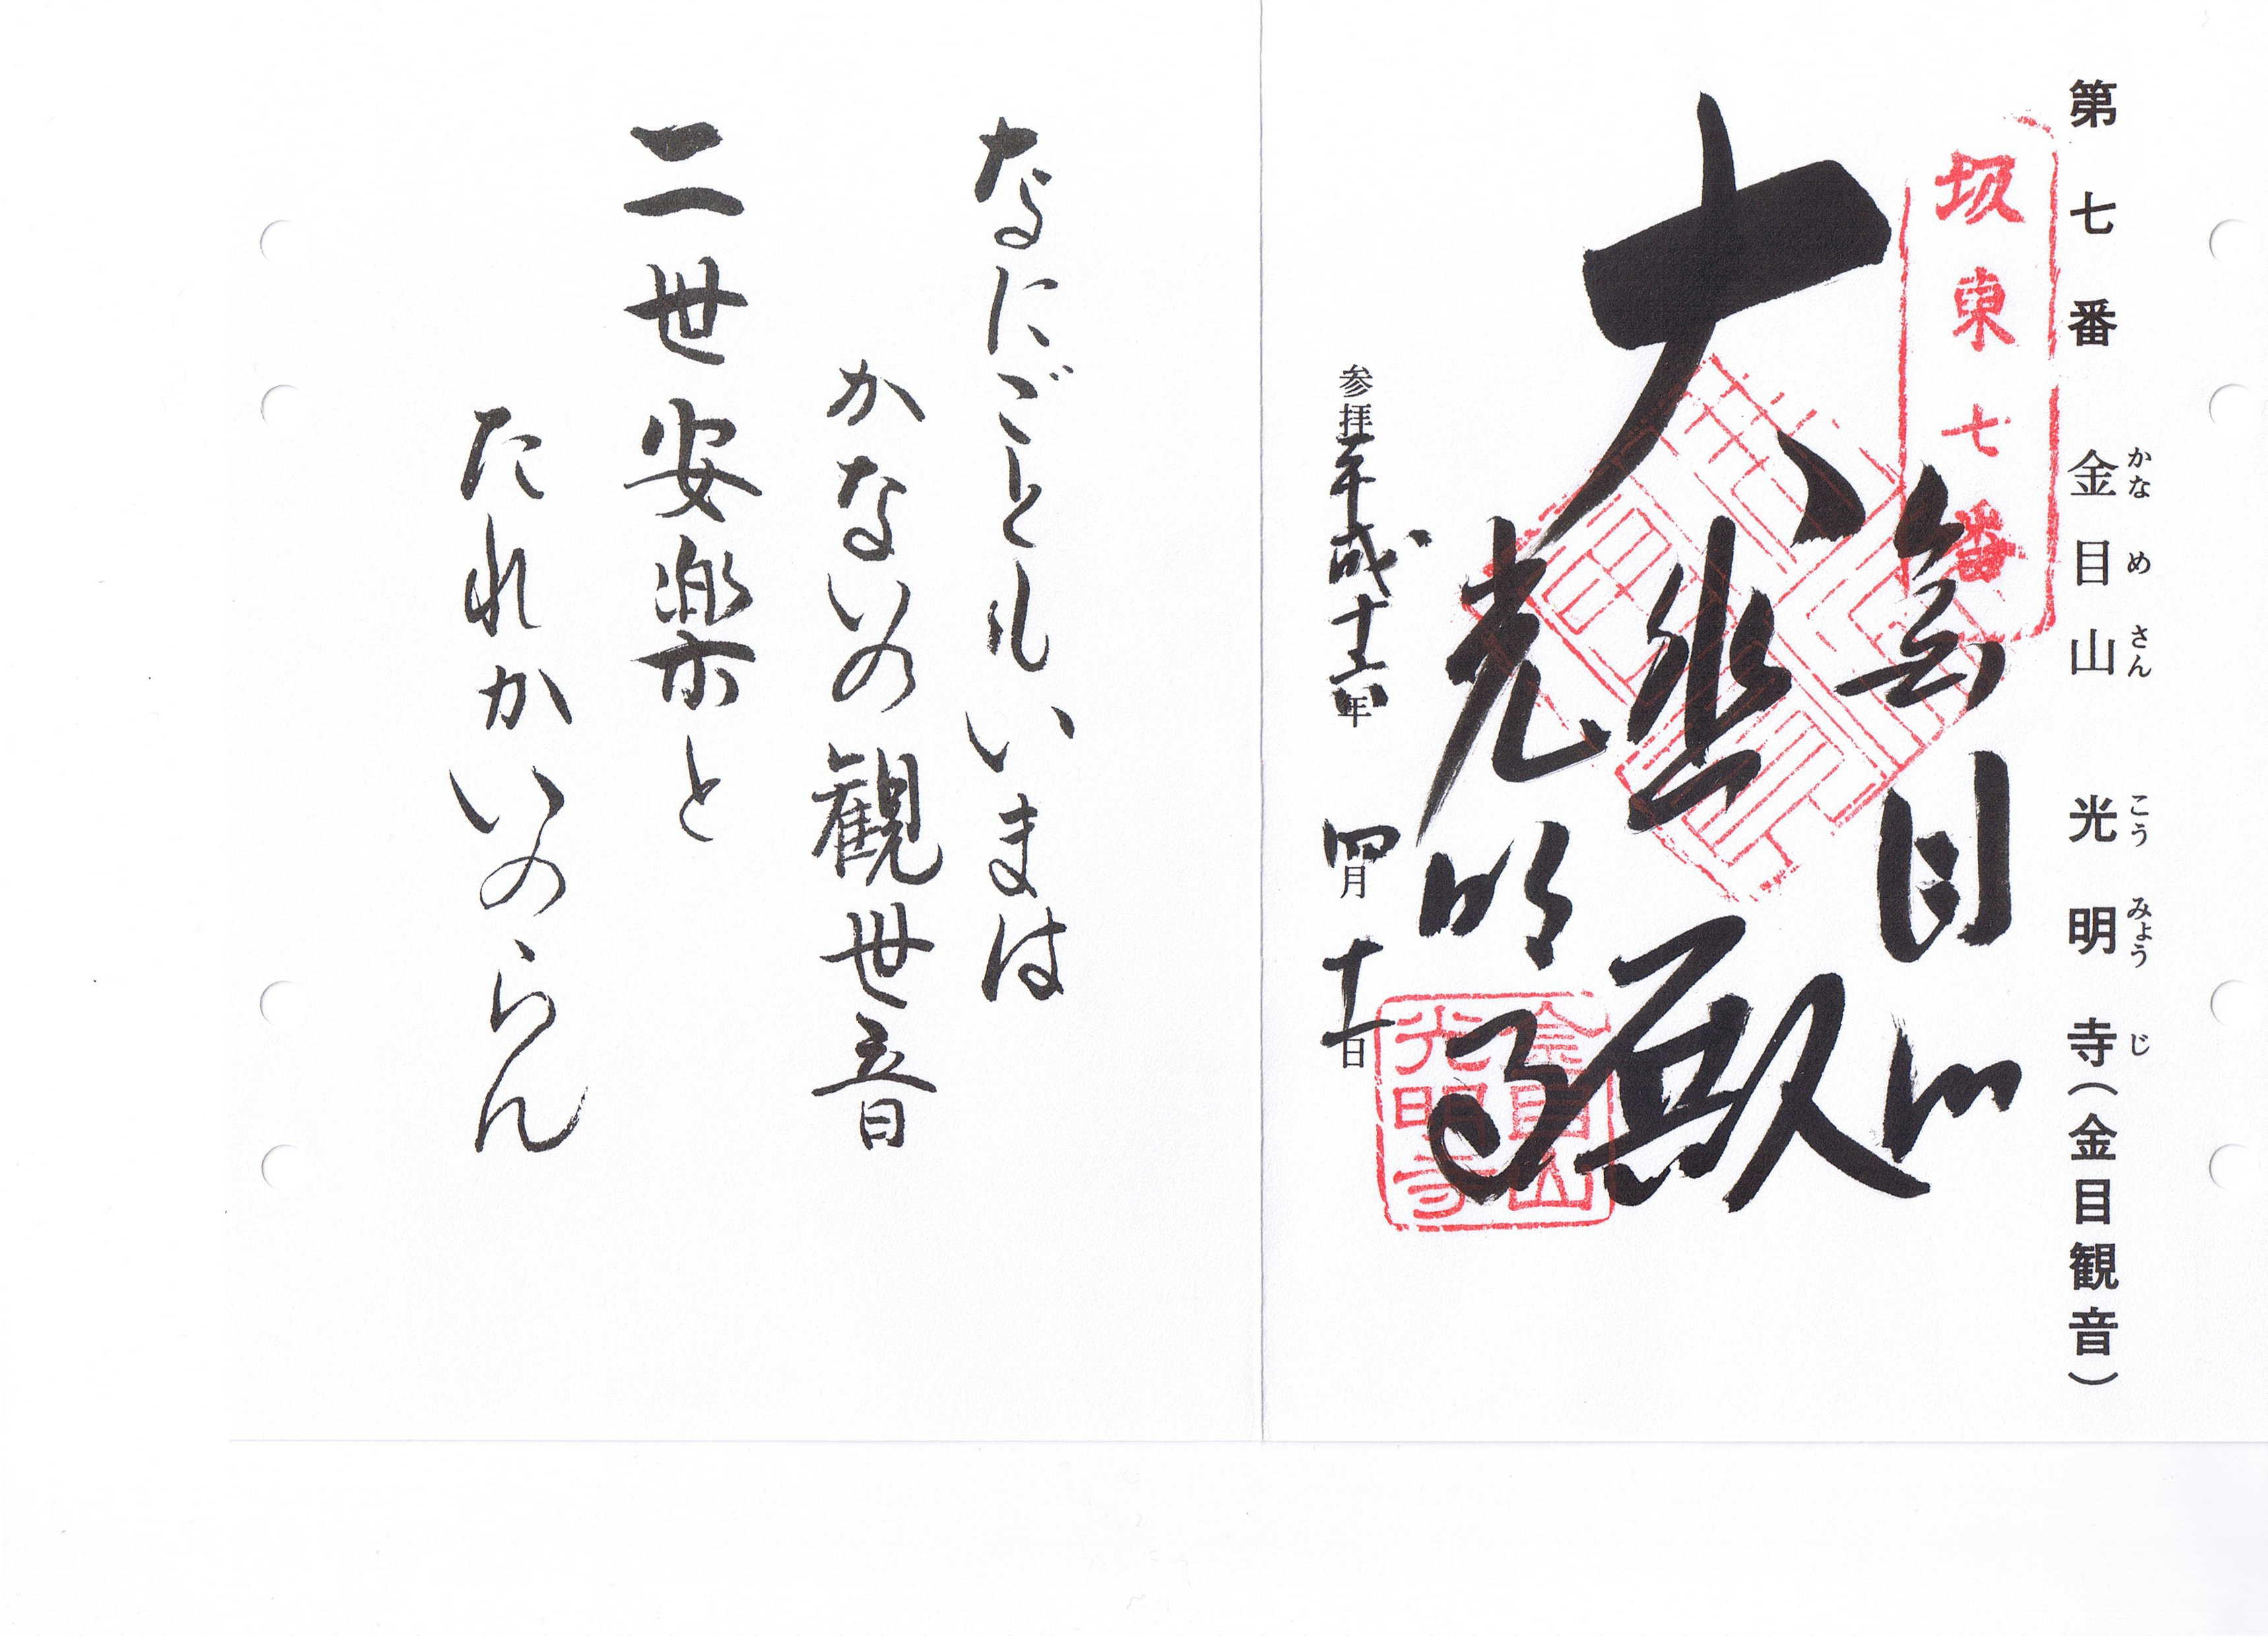 第七番 金目山 光明寺(金目観音)
かなめさん こうみょうじ
坂東七番
金目山
大悲殿
光明寺
金目山
光明寺
参拝平成十六年 四月 十一日
なにごともいまは
かないの観世音
二世安楽と
たれかいのらん